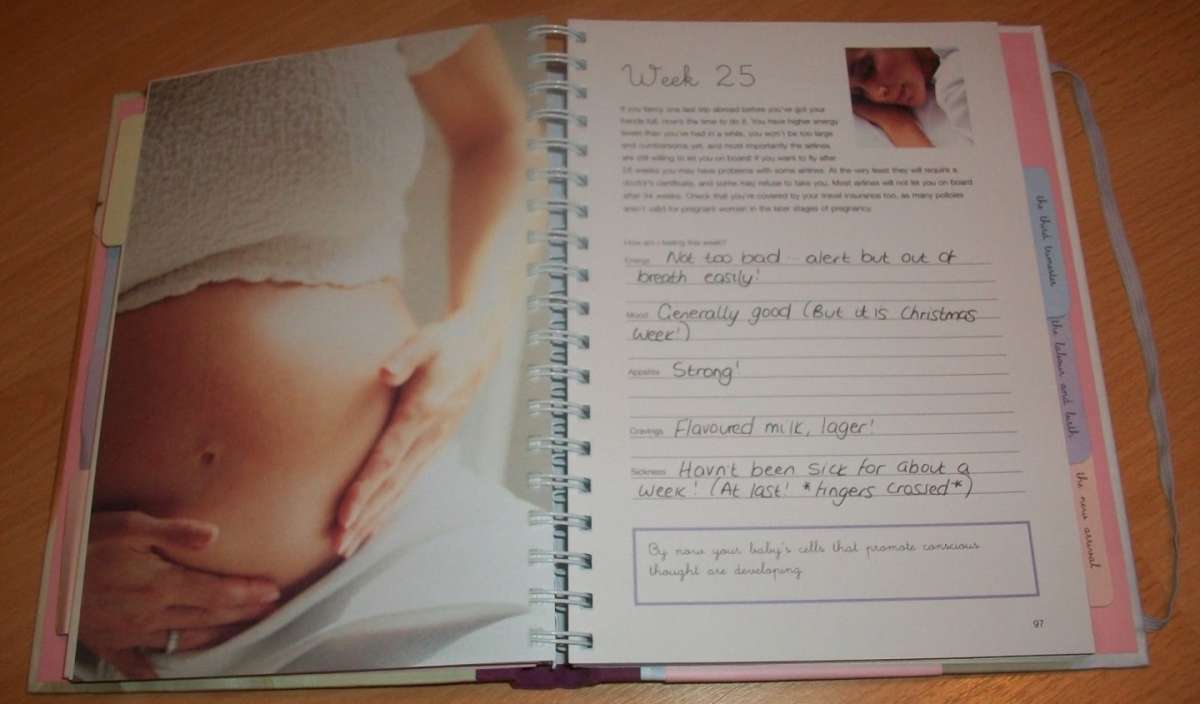 Week 25
If you fancy one last trip abroad before you've got your
hands full, now's the time to do it. You have higher energy
levels than you've had in a while, you won't be too large
and cumbersome yet, and most importantly the airlines
are still willing to let you on board! If you want to fly after
28 weeks you may have problems with some airlines. At the very least they will require a
doctor's certificate, and some may refuse to take you. Most airlines will not let you on board
after 34 weeks. Check that you're covered by your travel insurance too, as many policies
aren't valid for pregnant women in the later stages of pregnancy.
How am I feeling this week?
Energy Not too bad - alert but out of
breath easily!
Mood Generally good (But it is Christmas
week!)
Appetite Strong!
Cravings Flavoured milk, lager!
Sickness Havn't been sick for about a
week! (At last! *fingers crossed*)
By now your baby's cells that promote conscious
thought are developing
97
the third trimester
the labour and birth
the new arrival